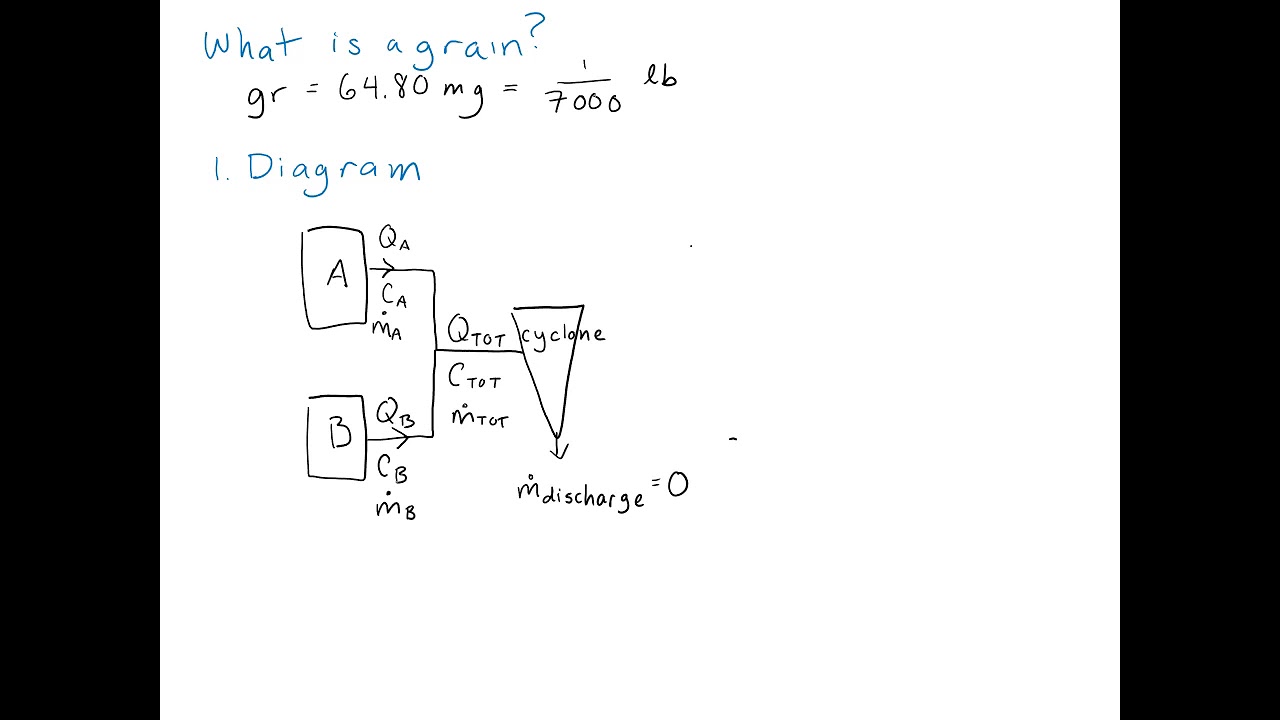 What is a grain?
gr = 64.80 mg = 1/7000 lb
1. Diagram
A
Q_A
C_A
ṁ_A
B
Q_B
C_B
ṁ_B
Q_TOT
C_TOT
ṁ_TOT
cyclone
ṁ_discharge = 0